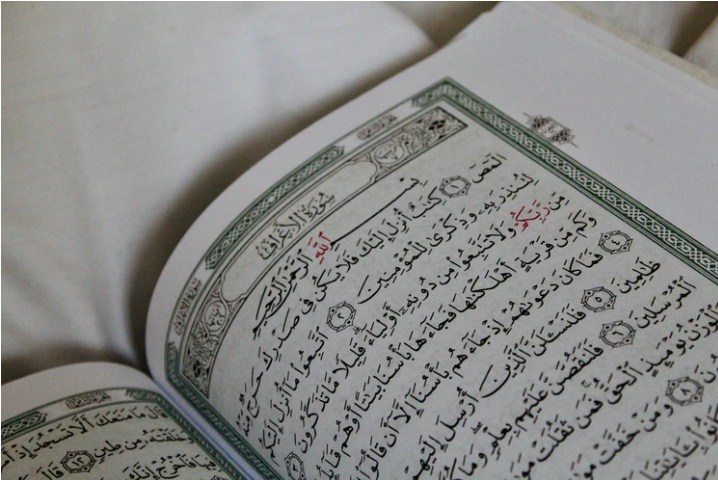 سُورَةُ الأَعْرَافِ
بِسْمِ ٱللَّهِ ٱلرَّحْمَٰنِ ٱلرَّحِيمِ
الٓمٓصٓ ١ كِتَٰبٌ أُنزِلَ إِلَيْكَ فَلَا يَكُن فِى صَدْرِكَ حَرَجٌ مِّنْهُ
لِتُنذِرَ بِهِۦ وَذِكْرَىٰ لِلْمُؤْمِنِينَ ٢ ٱتَّبِعُوا۟ مَآ أُنزِلَ إِلَيْكُم
مِّن رَّبِّكُمْ وَلَا تَتَّبِعُوا۟ مِن دُونِهِۦٓ أَوْلِيَآءَ قَلِيلًا مَّا تَذَكَّرُونَ
وَكَم مِّن قَرْيَةٍ أَهْلَكْنَٰهَا فَجَآءَهَا بَأْسُنَا بَيَٰتًا أَوْ هُمْ قَآئِلُونَ
٤ فَمَا كَانَ دَعْوَىٰهُمْ إِذْ جَآءَهُم بَأْسُنَآ إِلَّآ أَن قَالُوٓا۟
ظَٰلِمِينَ ٥ فَلَنَسْـَٔلَنَّ ٱلَّذِينَ أُرْسِلَ إِلَيْهِمْ
ٱلْمُرْسَلِينَ ٦ فَلَنَقُصَّنَّ عَلَيْهِم بِعِلْمٍ وَمَا كُنَّا
وَٱلْوَزْنُ يَوْمَئِذٍ ٱلْحَقُّ فَمَن ثَقُلَتْ
٨ وَمَنْ خَفَّتْ
مَا مَنَعَكَ أَلَّا تَسْجُدَ إِذْ
وَخَلَقْتَهُۥ مِن طِينٍ ١٢ قَالَ
فِيهَا فَٱخْرُجْ إِنَّكَ